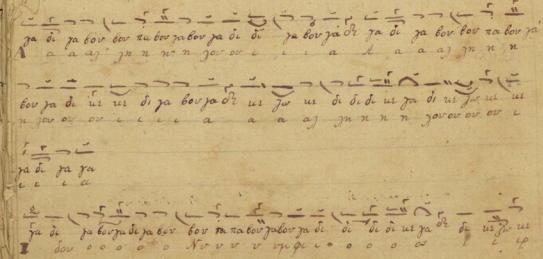 γα δι γα βου βου πα βου γα βου γα δι δι γα βου γα δι γα δι γα βου βου πα βου γα
Α α α αλ λη η η η λου ου ι ι ι α Α α α αλ λη η η
βου γα δι κε κε δι γα βου γα δι κε ζω κε δι δι δι κε γα δι κε ζω κε κε
η λου ου ου ι ι ι ι α α αλ λη η η η λου ου ου ου ι
γα δι γα γα
ι ι ι α
γα δι γα βου γα δι γα βου βου πα πα βου γα βου γα δι δι δι δι κε γα δι δι κε ζω κε
Ι δου ο ο ο ο Νυ υ υ υ υμφι ι ο ο ο ο ε ερ